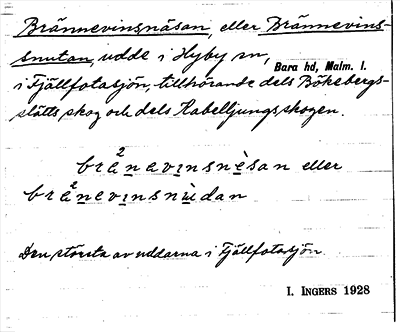 Brännevinsnäsan, eller Brännevins-
snutan, udde i Hyby sn, Bara hd, Malm. l.
i Fjällfotasjön, tillhörande dels Bökebergs-
slätts skog och dels Kabelljungsskogen.
brä²navınsnèsan eller
brä²nevınsnùdan
Den största av uddarna i Fjällfotasjön
I. INGERS 1928